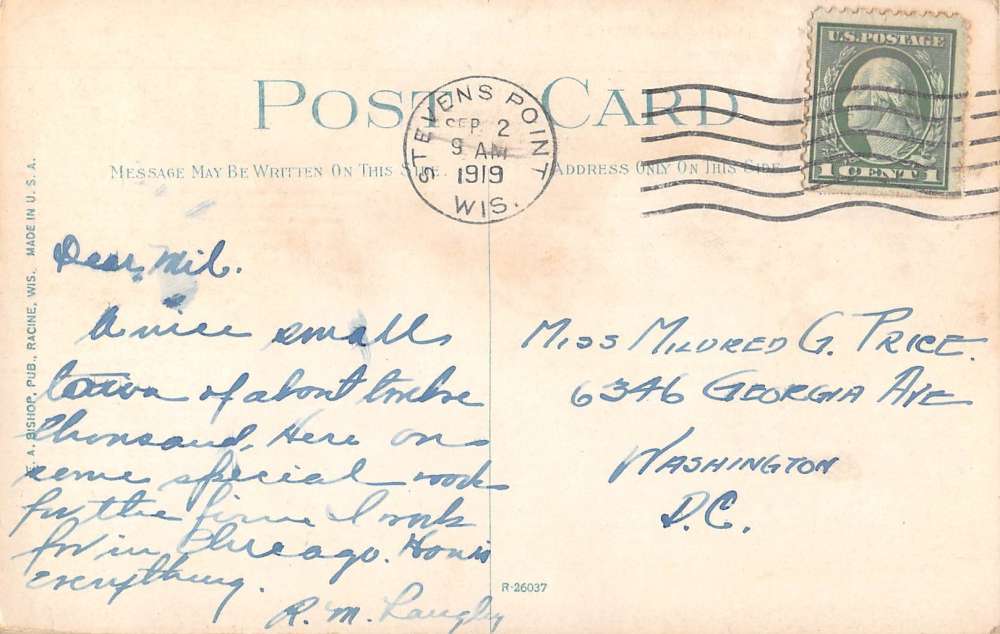 U.S. POSTAGE
1 CENT 1
POST CARD
STEVENS POINT
SEP. 2
9 AM
1919
WIS.
MESSAGE MAY BE WRITTEN ON THIS SIDE.
ADDRESS ONLY ON THIS SIDE
E. A. BISHOP, PUB., RACINE, WIS. MADE IN U. S. A.
Dear Mil.
A nice small
town of about twelve
thousand. Here on
some special work
for the firm I work
for in Chicago. How is
everything.
R. M. Langley
MISS MILDRED G. PRICE.
6346 GEORGIA AVE
WASHINGTON
D.C.
R-26037